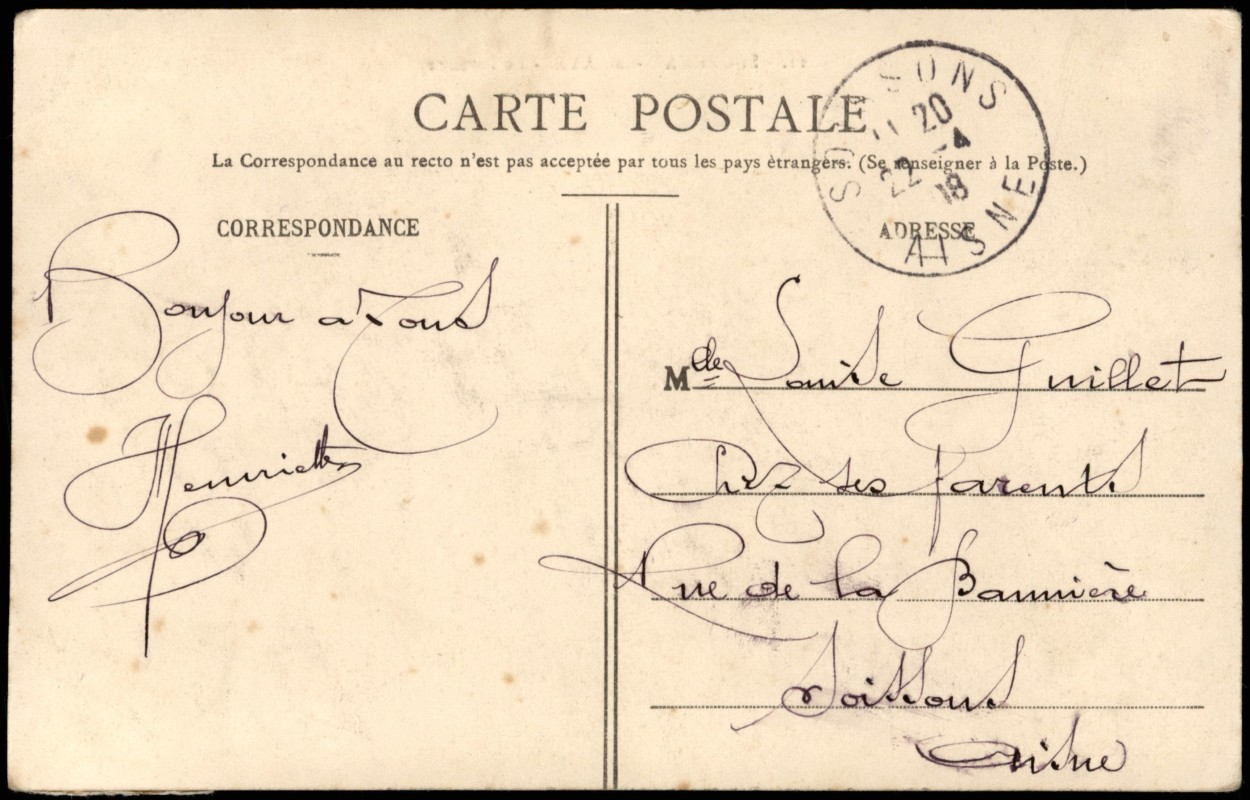 CARTE POSTALE
La Correspondance au recto n'est pas acceptée par tous les pays ètrangers. (Se renseigner à la Poste.)
SOISSONS
20
22 - 4
18
AISNE
CORRESPONDANCE
ADRESSE
Bonjour à Tous
Henriette
Mlle Louise Guillet
Chez ses parents
Rue de la Bannière
Soissons
Aisne